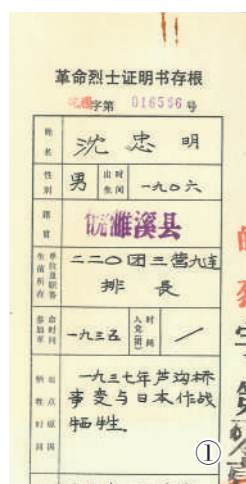 革命烈士证明书存根
皖濉字第 016556 号
姓名 沈忠明
性别 男 出生时间 一九〇六
籍贯 皖濉溪县
生前所在单位及职务 二二〇团三营九连
排長
参加革命时间 一九三五 入党(团)时间 /
牺牲时间地点原因 一九三七年芦沟桥
事变与日本作战
牺牲.
①